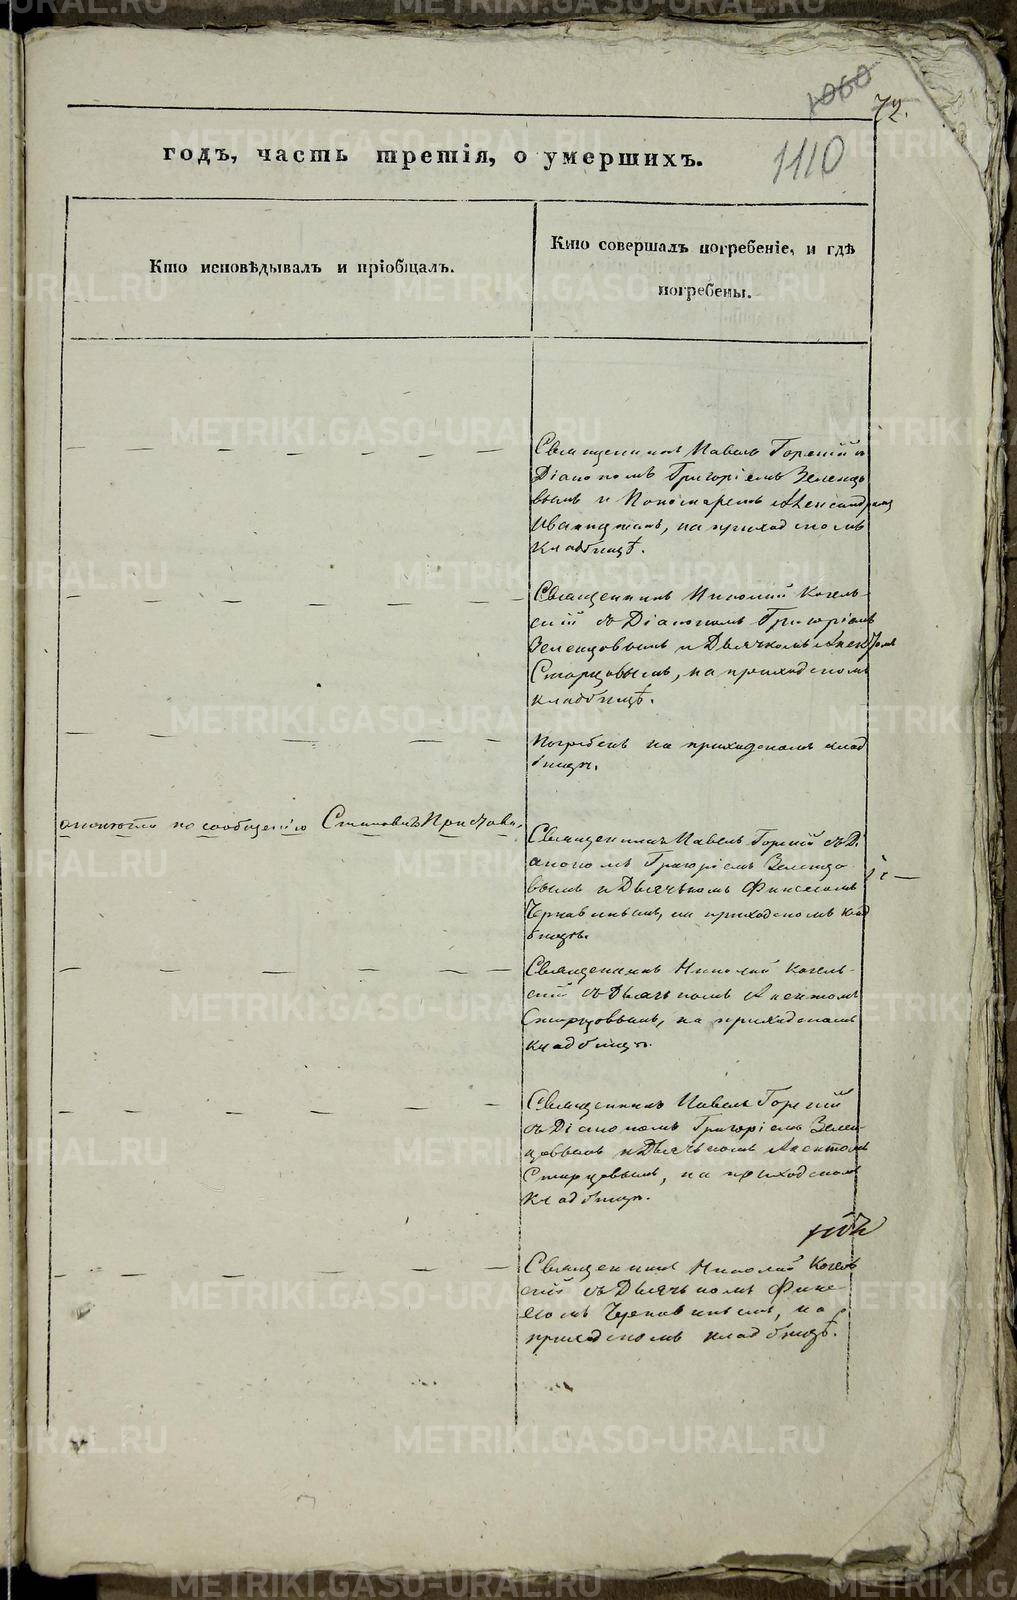 1060
72.
1110
годъ, часть третія, о умершихъ.
Кто исповѣдывалъ и пріобщалъ.
Кто совершалъ погребеніе, и гдѣ
погребены.
Священникъ Павелъ Горный съ
Діакономъ Григоріемъ Зеленцо
вымъ и Пономаремъ
на приходскомъ
кладбищѣ.
Священникъ Николай Когель-
скій съ Діакономъ Григоріемъ
Зеленцовымъ и Дьячкомъ
Старцовымъ, на приходскомъ
кладбищѣ.
Погребенъ на приходскомъ клад
бищѣ.
по сообщенію
Священникъ Павелъ Горный съ Д
іакономъ Григоріемъ Зеленцо
вымъ и Дьячькомъ
на приходскомъ клад
бищѣ.
Священникъ Николай Когель-
скій съ Дьячькомъ
Старцовымъ, на приходскомъ
кладбищѣ.
Священникъ Павелъ Горный
съ Діакономъ Григоріемъ Зелен-
цовымъ и Дьячькомъ
Старцовымъ, на приходскомъ
кладбищѣ.
Священникъ Николай
скій съ Дьячькомъ
на
приходскомъ кладбищѣ.
METRIKI.GASO-URAL.RU